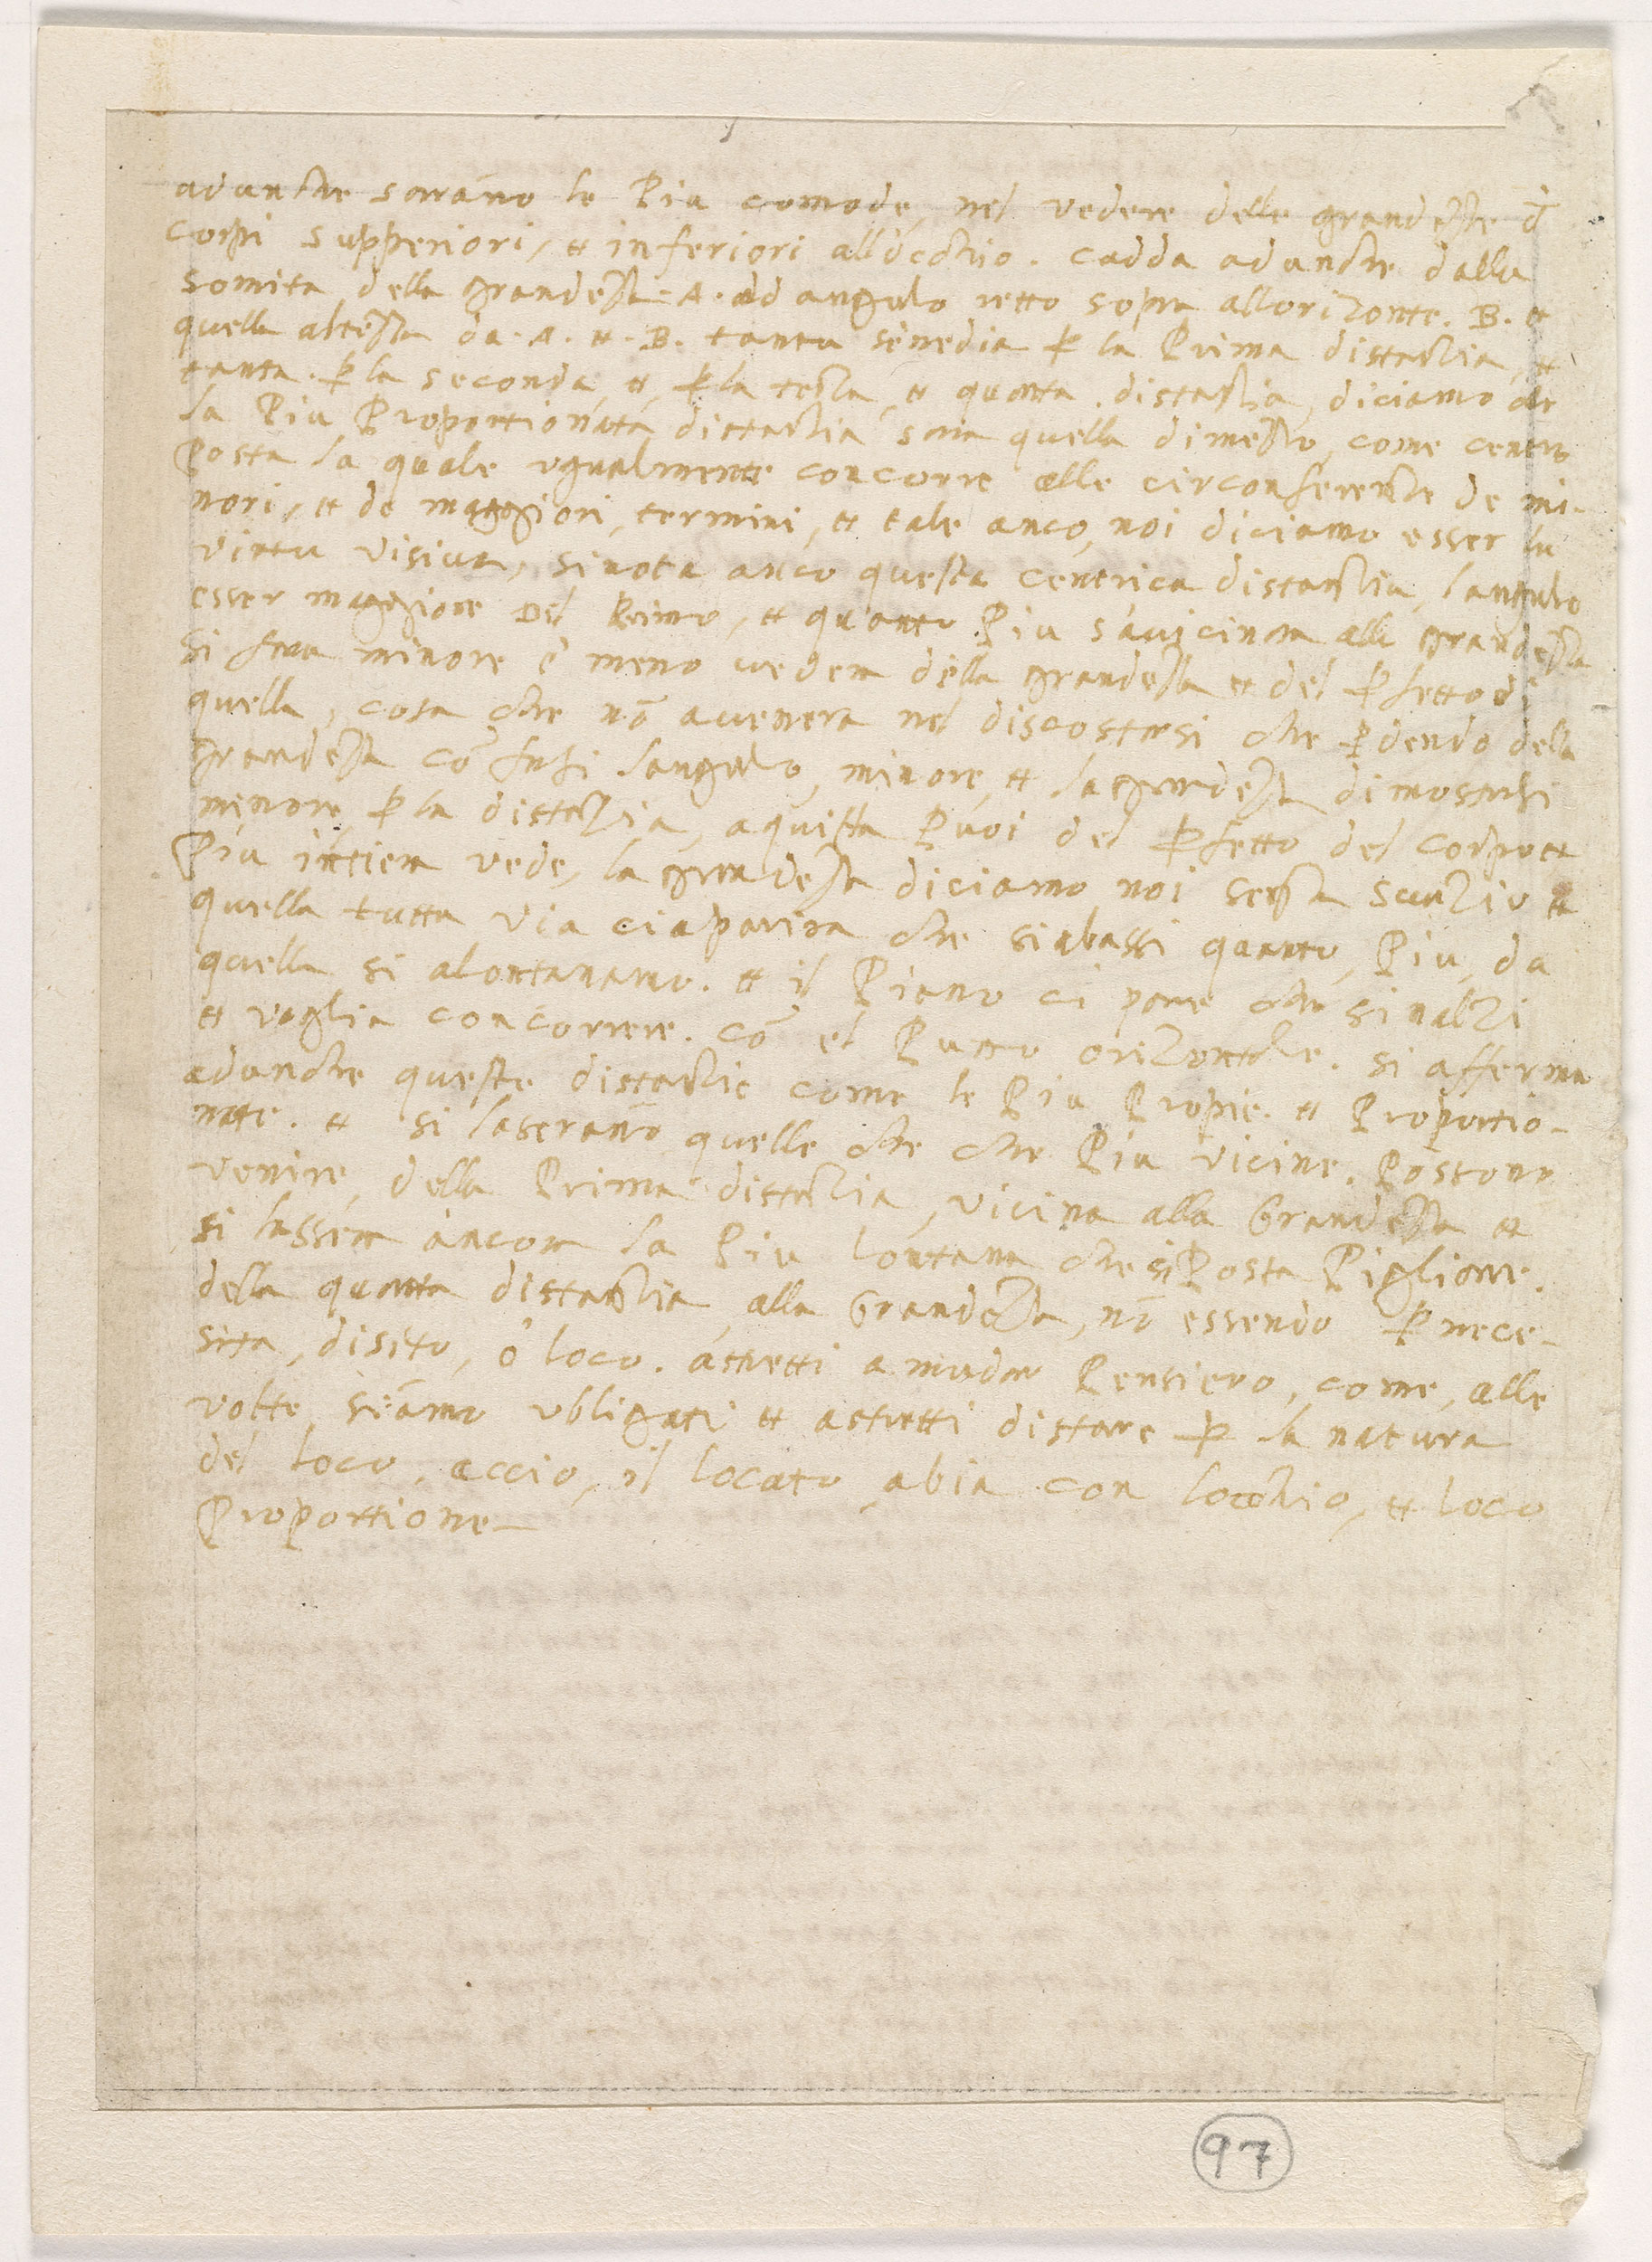 adunche sarano le Piu comode, nel vedere delle grandezze d̄
corpi supperiori, et inferiori all'ochio. cadda adunche dalla
somita della grandezza .A. ad angulo retto sopra allorizonte. B. et
quella altezza da .A. et .B. tanta sene dia p la Prima distazia, et
tanta. p la seconda, et, p la terza, et quarta. distazia, diciamo che
la Piu Proportionata distazia sara quella dimezzo, come centro
Posta la quale ugualmente concorre alle circonferenze de mi-
nori, et de maggiori, termini, et tale anco, noi diciamo esser la
virtu visiva, si nota anco questa centrica distazia, l'angulo
esser maggiore del Primo, et quanto Piu s'avicinara alla grandezza
si fara minore e meno vedera della grandezza et del pfetto di
quella, cosa che nō avenera nel discostarsi che pdendo della
grandezza cō farsi langulo, minore, et la grandezza dimostrasi
minore, p la distazia, aquista Puoi del pfetto del corpo et
Piu intiera vede, la grandezza diciamo noi serza scurzio et
quella tutta via ci aparira che si abassi quanto, Piu, da
quella si alontanamo. et il Piano ci pare che sinalzi
et voglia concorrere. cō el Punto orizontale. si afferma
adunche queste distazie come le Piu Propie. et Proportio-
nate. et si laserano quelle che che Piu vicine. Possono
venire, della Prima distazia, vicina alla Grandezza et
si lassera ancora la Piu lontana che si Possa Pigliare.
della quarta distazia, alla Grandezza, nō essendo p nece-
sita, di sito, o loco. astretti a mudar Pensiero, come, alle
volte, siamo ubligati et astretti distare p la natura
del loco, accio, il locato, abia con lochio, et loco
Proportione—
97